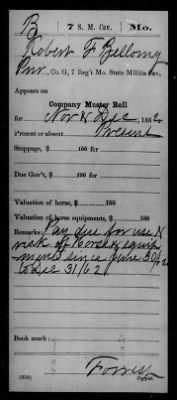 B 7 S. M. Cav. Mo.
Robert F Bellomy
Pvt, Co. G, 7 Reg't Mo. State Militia Cav.
Appears on
Company Muster Roll
for Nov & Dec, 1862
Present or absent Present
Stoppage, $ 100 for
Due Gov't, $ 100 for
Valuation of horse, $ 100
Valuation of horse equipments, $ 100
Remarks: Pay due for use &
risk of Horse & equip
ments since June 30/62
to Dec 31/62
Book mark:
Forrest
(858) Copyist.